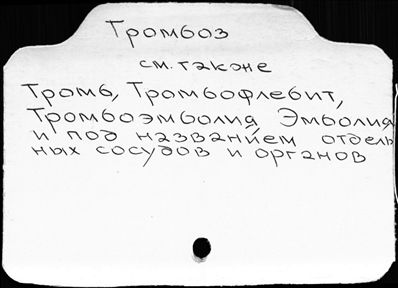 Тромбоз
см. также
Тромб, Тромбофлебит,
Тромбоэмболия Эмболия
и под названием отдель
ных сосудов и органов